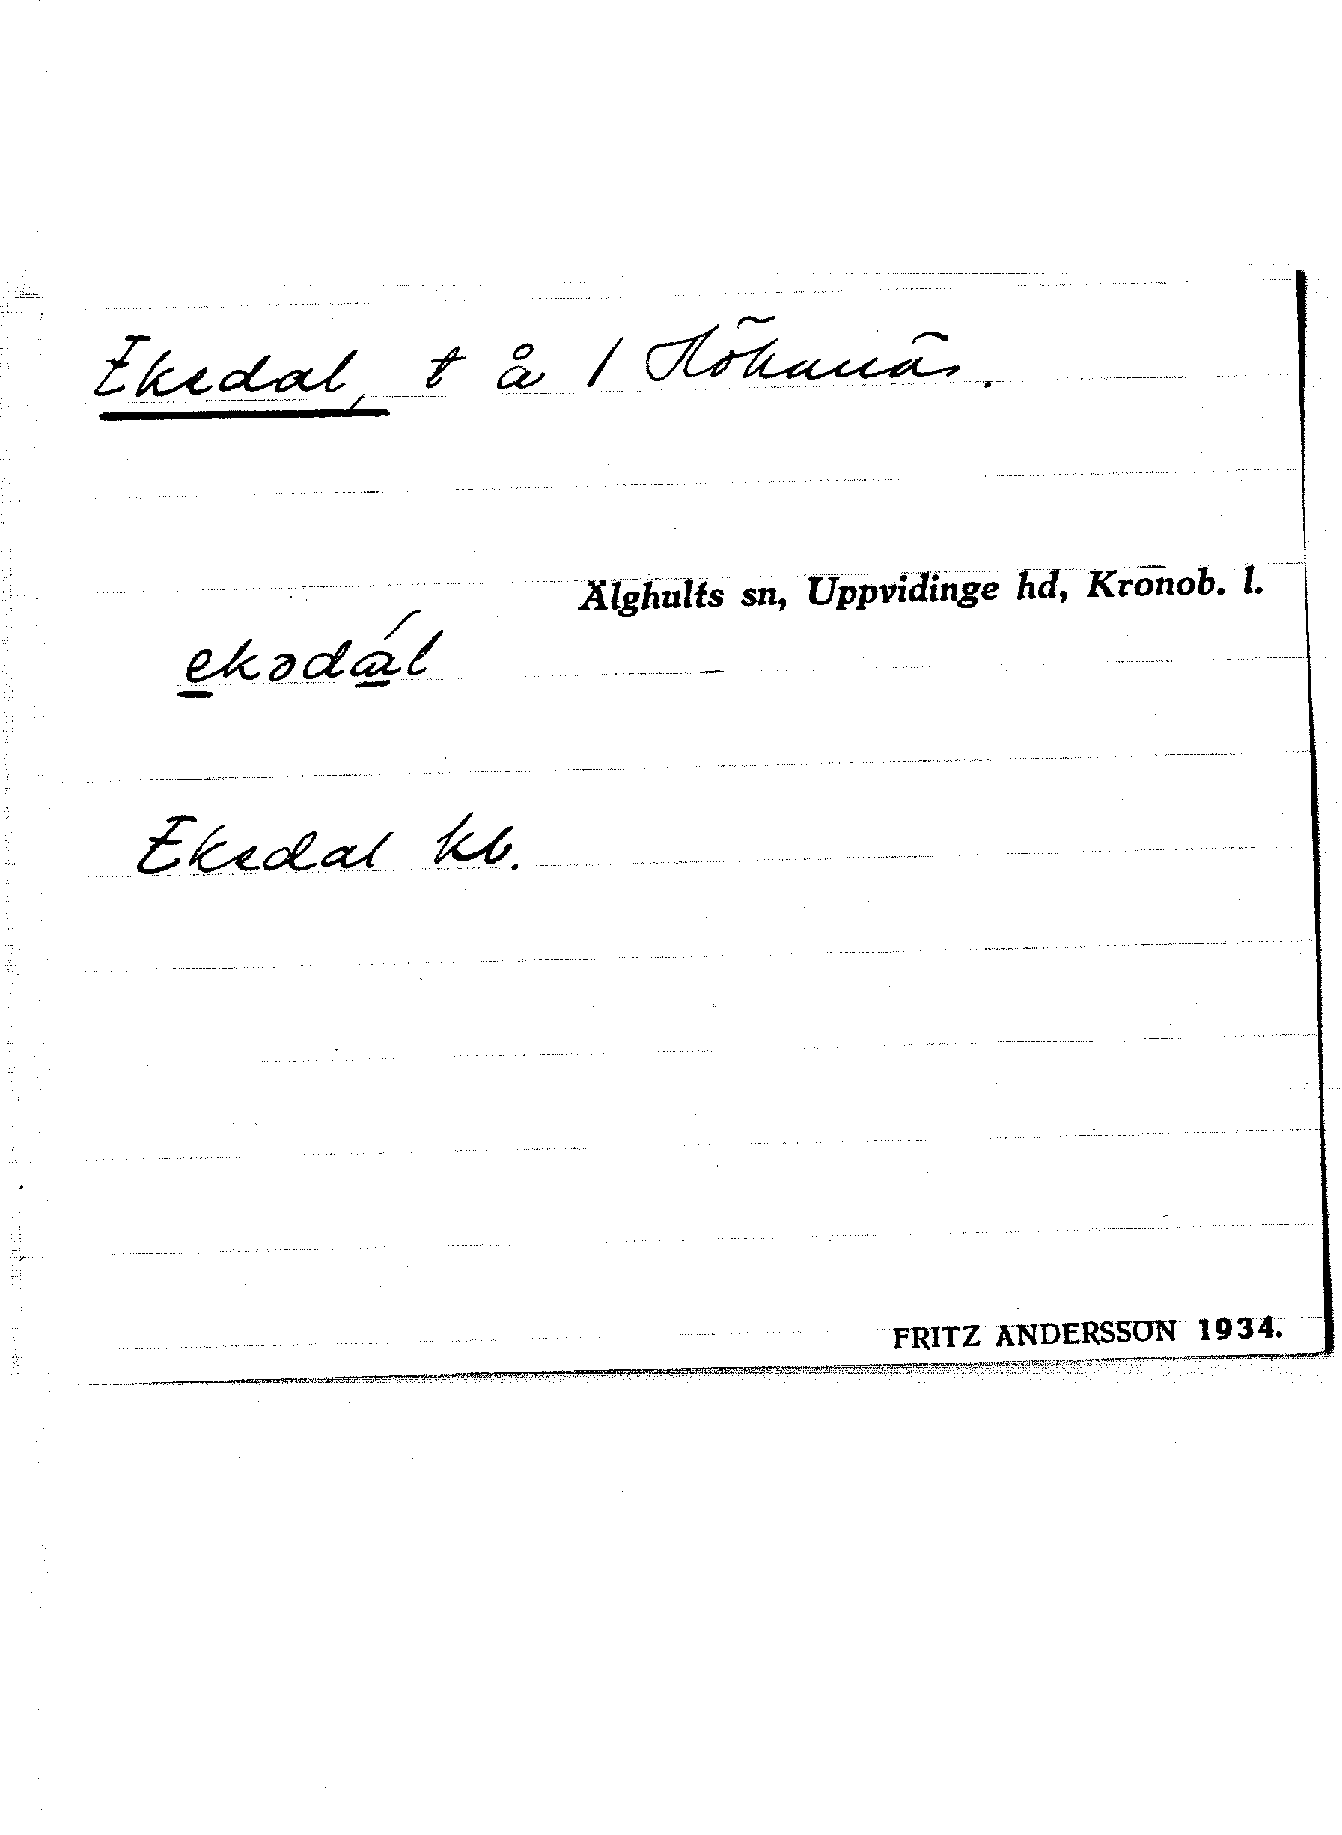 Ekedal, t å 1 Hökanäs.
Älghults sn, Uppvidinge hd, Kronob. l.
ekədál
Ekedal kb.
FRITZ ANDERSSON 1934.